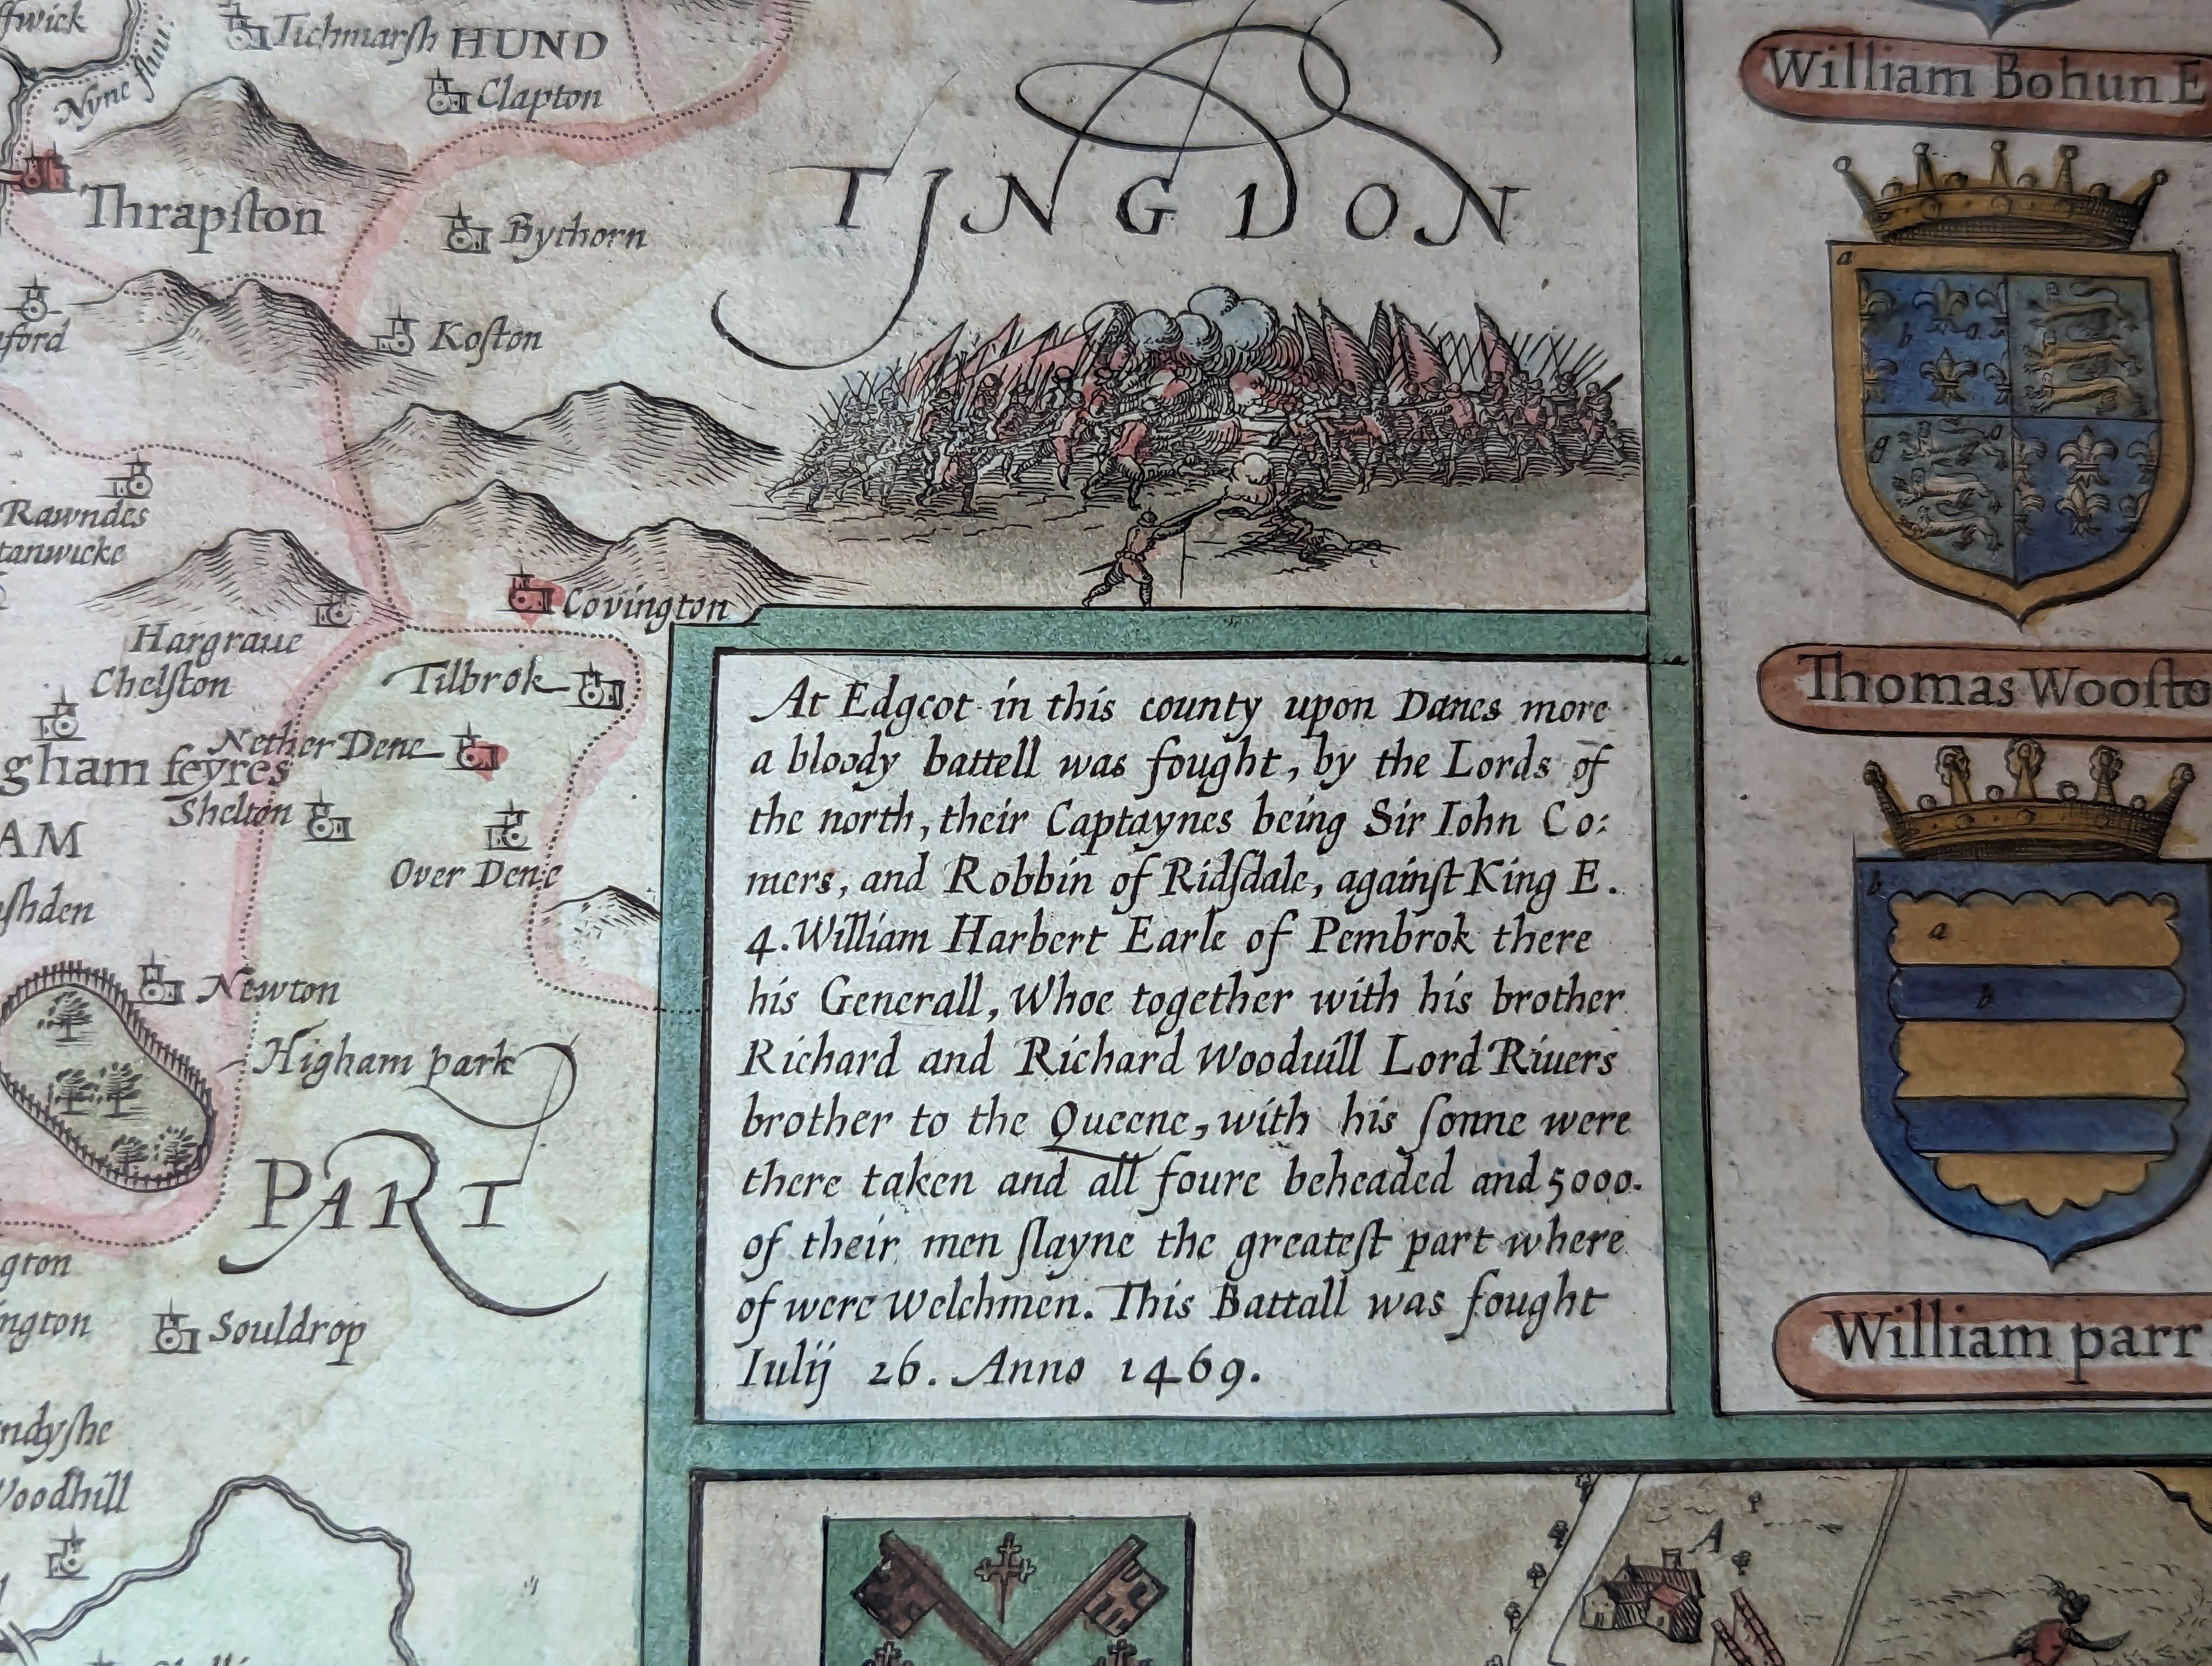 Tichmarſh HUND
Nyne fluu:
Clapton
Thrapſton
Bythorn
Koſton
TINGDON
Rawndes
Hargraue
Covington
Chelſton
Tilbrok
Nether Dene
feyres
Shelton
Over Dene
Newton
Higham park
PART
Souldrop
At Edgcot in this county upon Danes more
a bloody battell was fought, by the Lords of
the north, their Captaynes being Sir Iohn Co:
mers, and Robbin of Ridſdale, againſt King E.
4. William Harbert Earle of Pembrok there
his Generall, Whoe together with his brother
Richard and Richard Wooduill Lord Riuers
brother to the Queene, with his ſonne were
there taken and all foure beheaded and 5000.
of their men ſlayne the greateſt part where
of were Welchmen. This Battall was fought
Iulij 26. Anno 1469.
William Bohun E
a
b a
g a
Thomas Wooſte
b
a
b
William parr
A